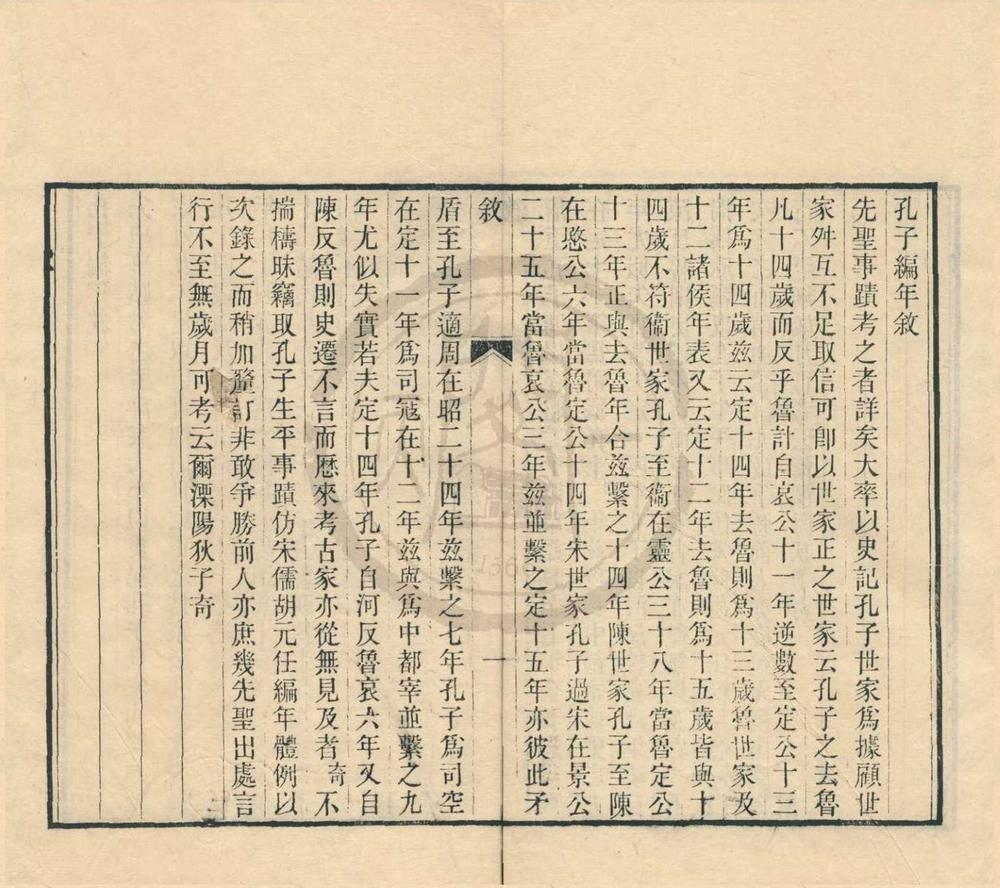 孔子編年敘
先聖事蹟考之者詳矣大率以史記孔子世家爲據顧世
家舛互不足取信可卽以世家正之世家云孔子之去魯
凡十四歲而反乎魯計自哀公十一年逆數至定公十三
年爲十四歲兹云定十四年去魯則爲十三歲魯世家及
十二諸侯年表又云定十二年去魯則爲十五歲皆與十
四歲不符衞世家孔子至衞在靈公三十八年當魯定公
十三年正與去魯年合兹繫之十四年陳世家孔子至陳
在愍公六年當魯定公十四年宋世家孔子過宋在景公
二十五年當魯哀公三年兹並繫之定十五年亦彼此矛
敘
一
盾至孔子適周在昭二十四年兹繫之七年孔子爲司空
在定十一年爲司寇在十二年兹與爲中都宰並繫之九
年尤似失實若夫定十四年孔子自河反魯哀六年又自
陳反魯則史遷不言而歷來考古家亦從無見及者奇不
揣檮昧竊取孔子生平事蹟仿宋儒胡元任編年體例以
次錄之而稍加釐訂非敢爭勝前人亦庶幾先聖出處言
行不至無歲月可考云爾溧陽狄子奇